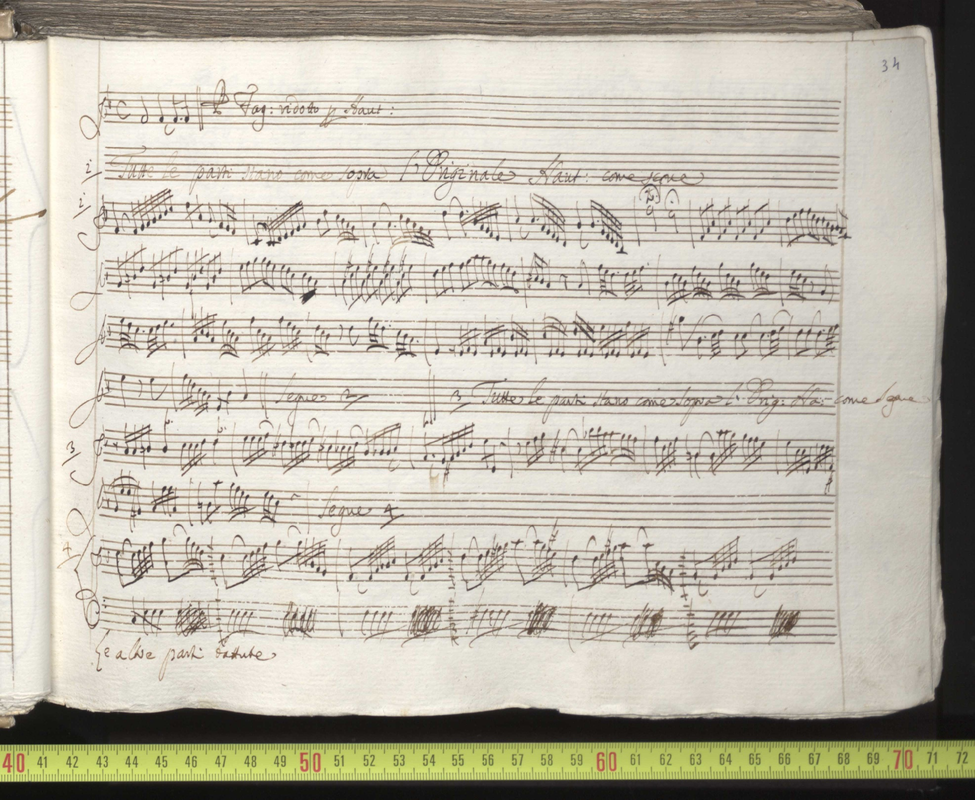 34
Fag: ridotto p Haut:
i Tutte le parti stano come sopra l'Originale Haut: come segue
i
Segue 2 3 Tutte le parti stano come sopra l'Orig: Ha: come segue
3
Segue 4
4
Le altre parti battute
40 41 42 43 44 45 46 47 48 49 50 51 52 53 54 55 56 57 58 59 60 61 62 63 64 65 66 67 68 69 70 71 72